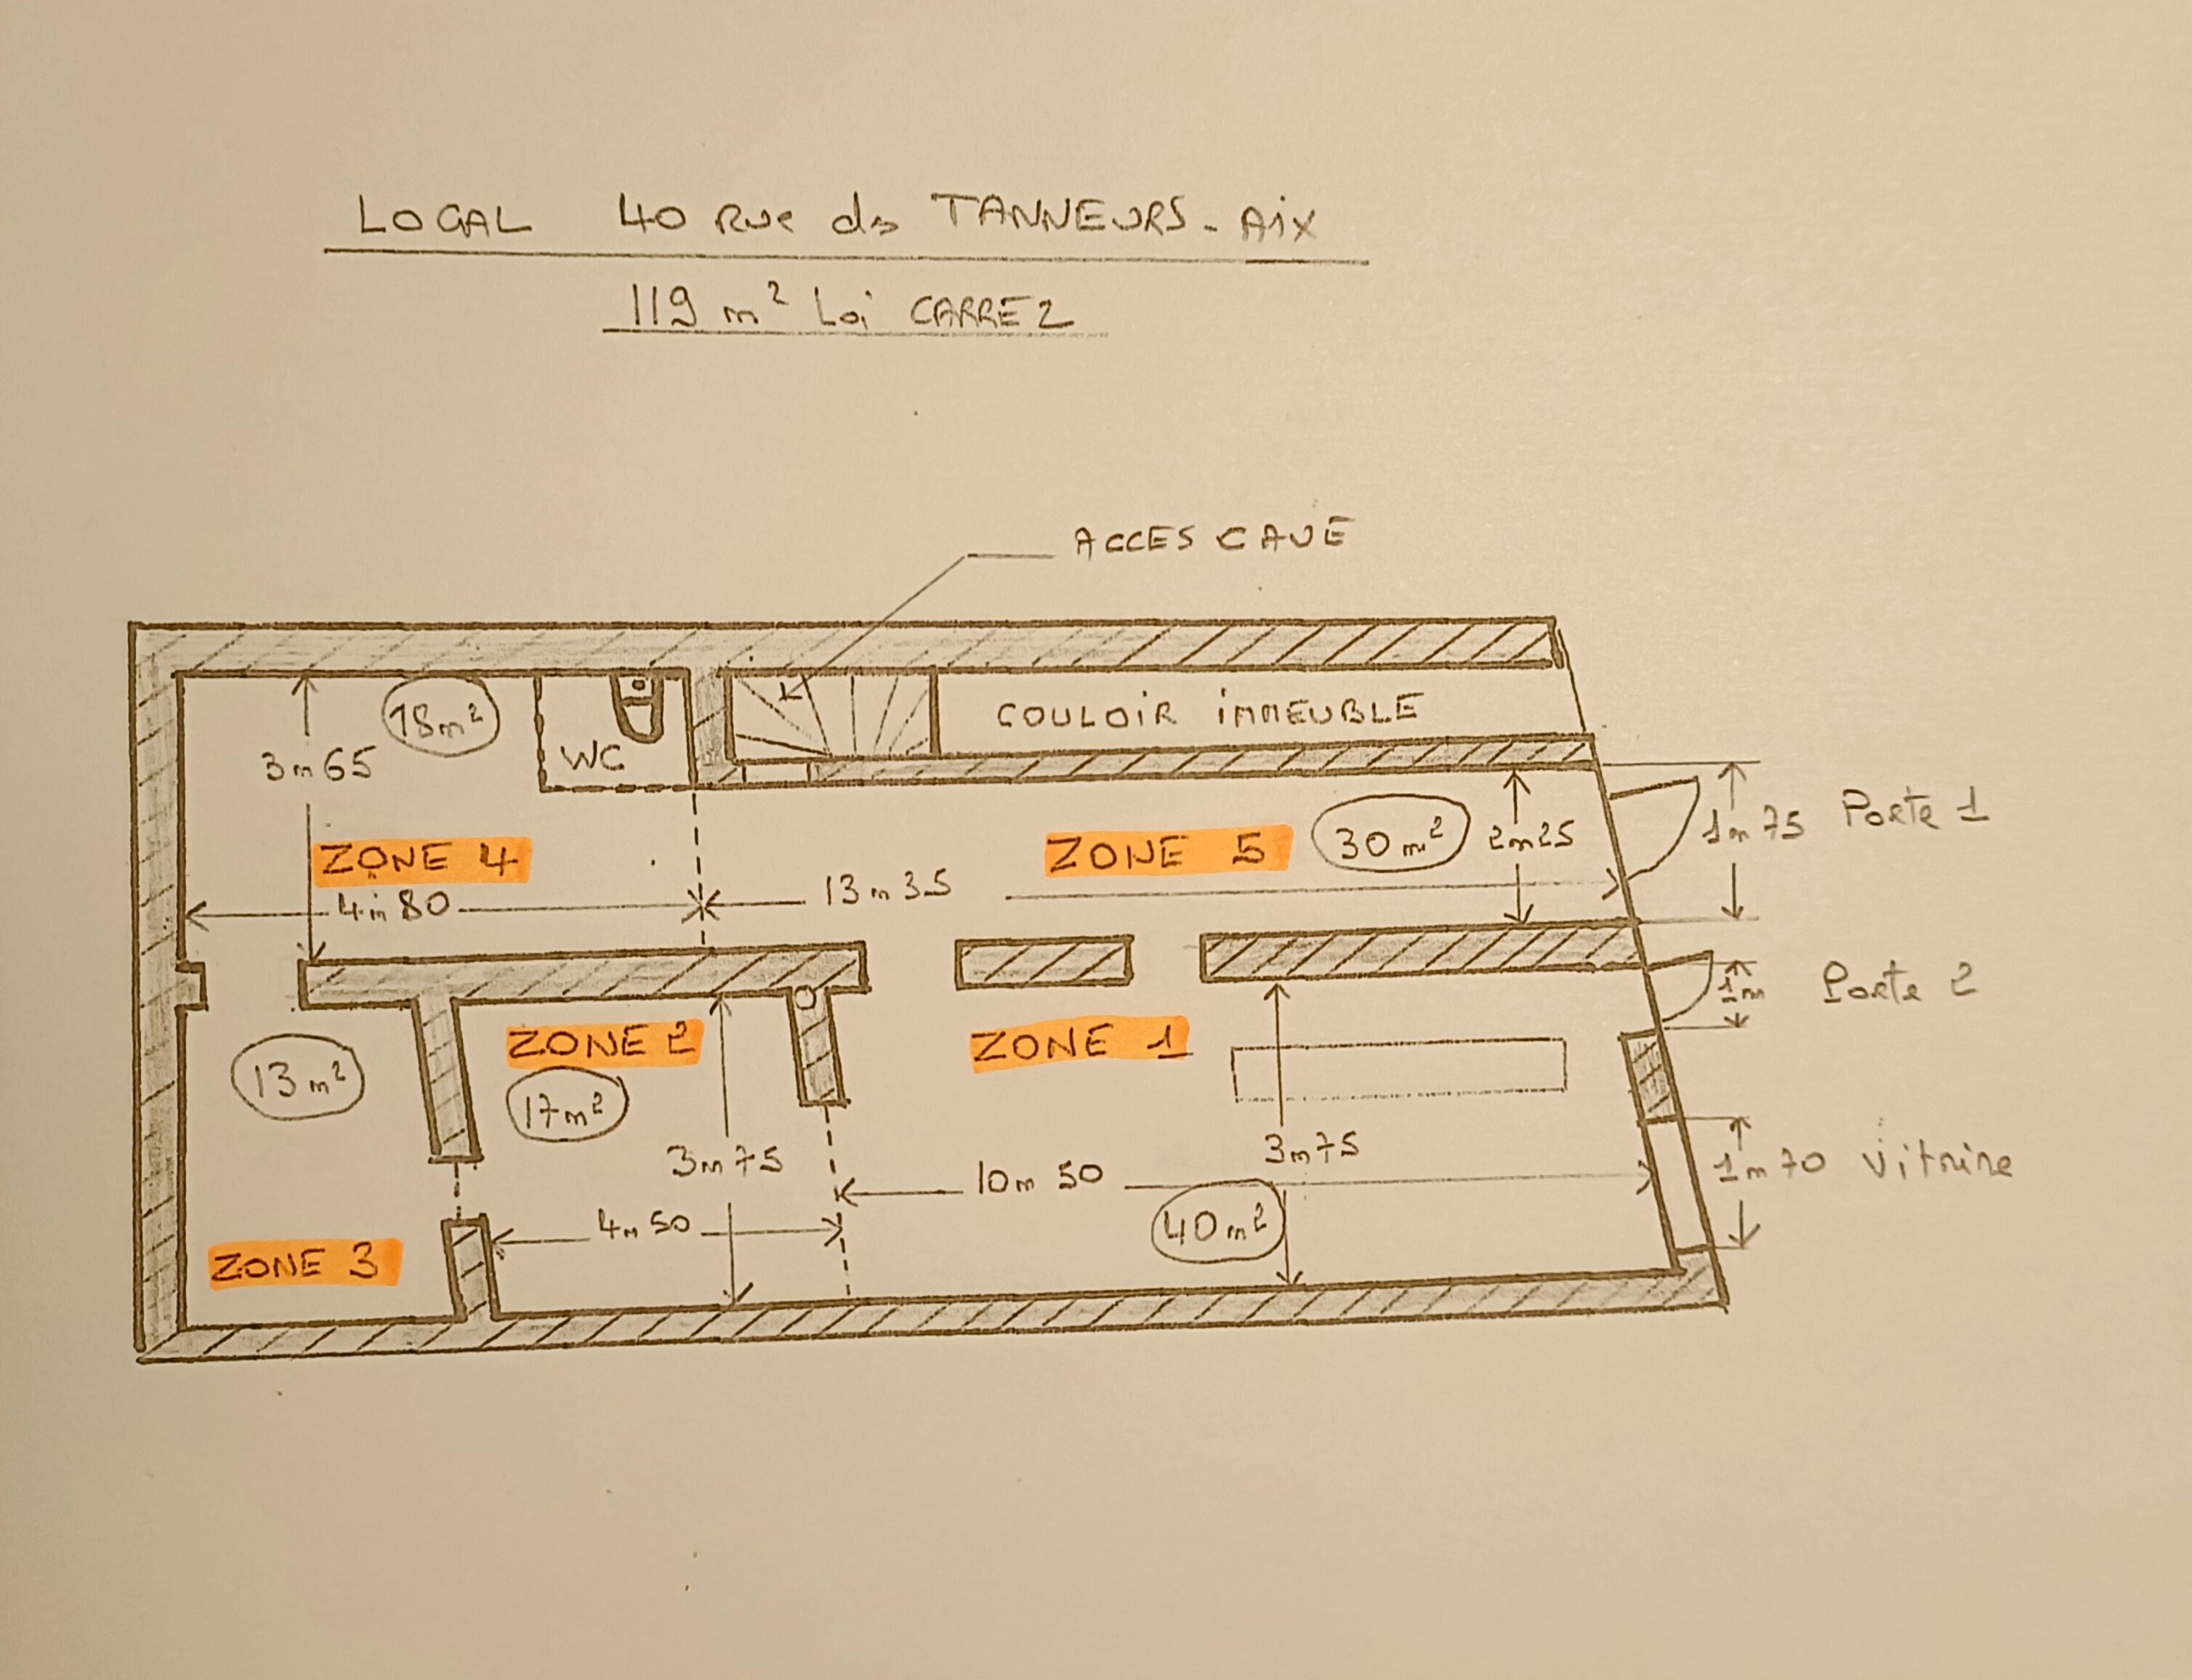 LOCAL 40 Rue des TANNEURS - Aix
119 m² Loi CARREZ
ACCES CAVE
18m²
WC
COULOIR IMMEUBLE
3m65
ZONE 4
4m80
13m35
ZONE 5
30m²
2m25
1m75 Porte 1
1m Porte 2
13m²
ZONE 2
17m²
ZONE 1
3m75
3m75
10m50
1m70 Vitrine
4m50
40m²
ZONE 3